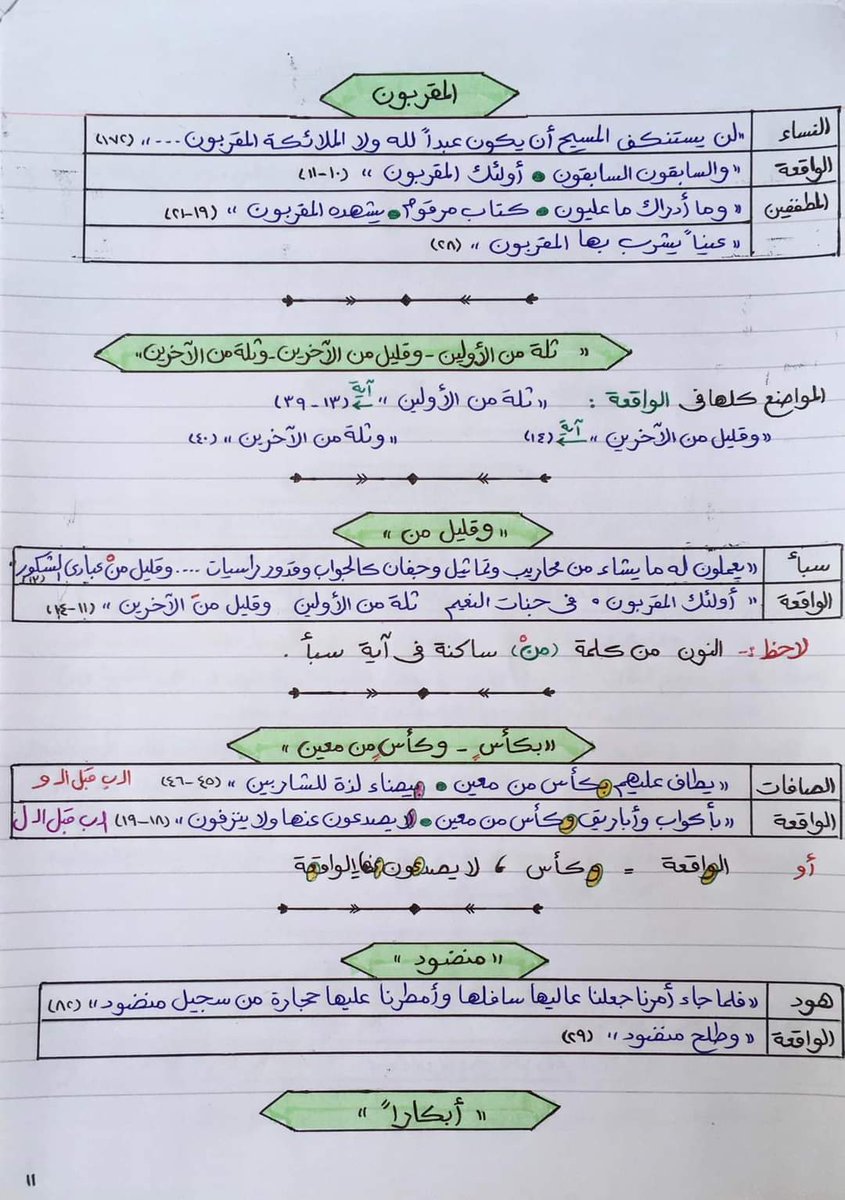 المقربون
النساء «لن يستنكف المسيح أن يكون عبداً لله ولا الملائكة المقربون ...» (١٧٢)
الواقعة «والسابقون السابقون • أولئك المقربون» (١٠-١١)
المطففين «وما أدراك ما عليون • كتاب مرقوم • يشهده المقربون» (١٩-٢١)
«عيناً يشرب بها المقربون» (٢٨)
«ثلة من الأولين - وقليل من الآخرين - وثلة من الآخرين»
المواضع كلها فى الواقعة : «ثلة من الأولين» آية (١٣-٣٩)
«وقليل من الآخرين» آية (١٤) «وثلة من الآخرين» (٤٠)
«وقليل من»
سبأ «يعملون له ما يشاء من محاريب وتماثيل وجفان كالجواب وقدور راسيات .... وقليل منْ عبادى الشكور» (١٣)
الواقعة «أولئك المقربون • فى جنات النعيم ثلة من الأولين وقليل منَ الآخرين» (١١-١٤)
لاحظ :- النون من كلمة (منْ) ساكنة فى آية سبأ .
«بكأسٍ - وكأسٍ من معين»
الصافات «يطاف عليهم بكأس من معين • بيضاء لذة للشاربين» (٤٥-٤٦) الـ ب قبل الـ و
الواقعة «بأكواب وأباريق وكأس من معين • لا يصدعون عنها ولا ينزفون» (١٨-١٩) الـ ب قبل الـ ل
أو الواقعة = وكأس ، لا يصدعون عنها الواقعة
«منضود»
هود «فلما جاء أمرنا جعلنا عاليها سافلها وأمطرنا عليها حجارة من سجيل منضود» (٨٢)
الواقعة «وطلح منضود» (٢٩)
«أبكاراً»
١١